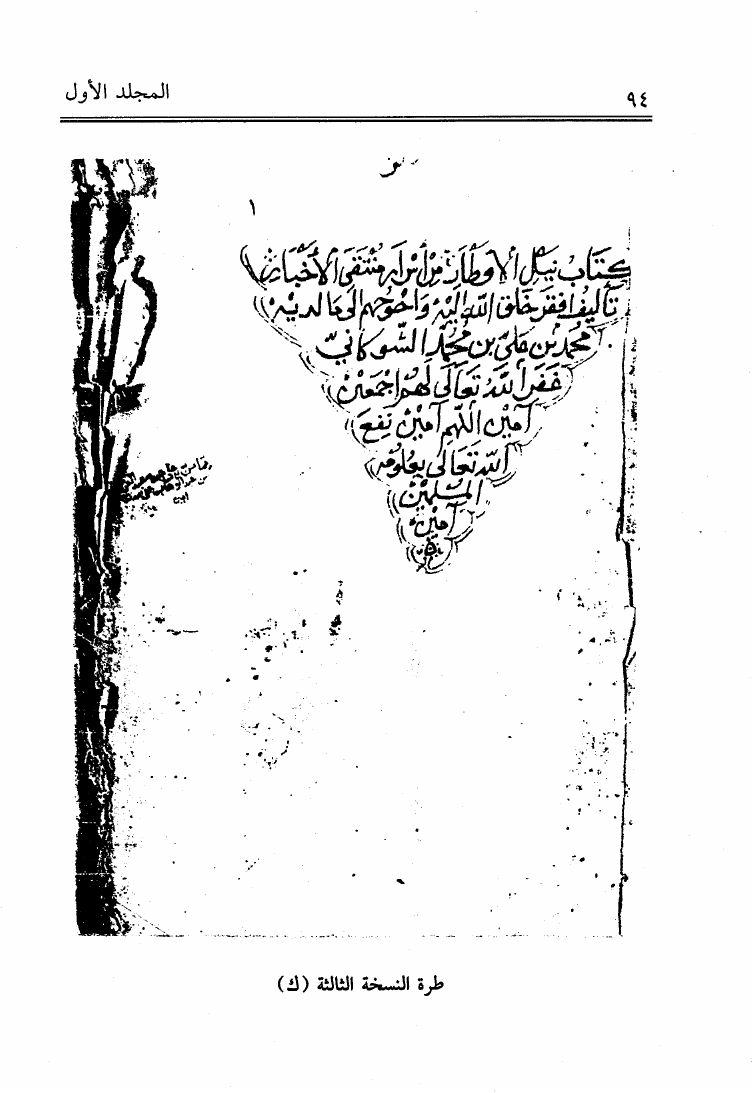 ٩٤
المجلد الأول
١
كتاب نيل الأوطار من أسرار منتقى الأخبار
تأليف افقر خلق الله اليه واحوجهم الى ما لديه
محمد بن علي بن محمد الشوكاني
غفر الله تعالى لهم اجمعين
آمين اللهم آمين نفع
الله تعالى بعلومه
المسلمين
آمين
طرة النسخة الثالثة (ك)